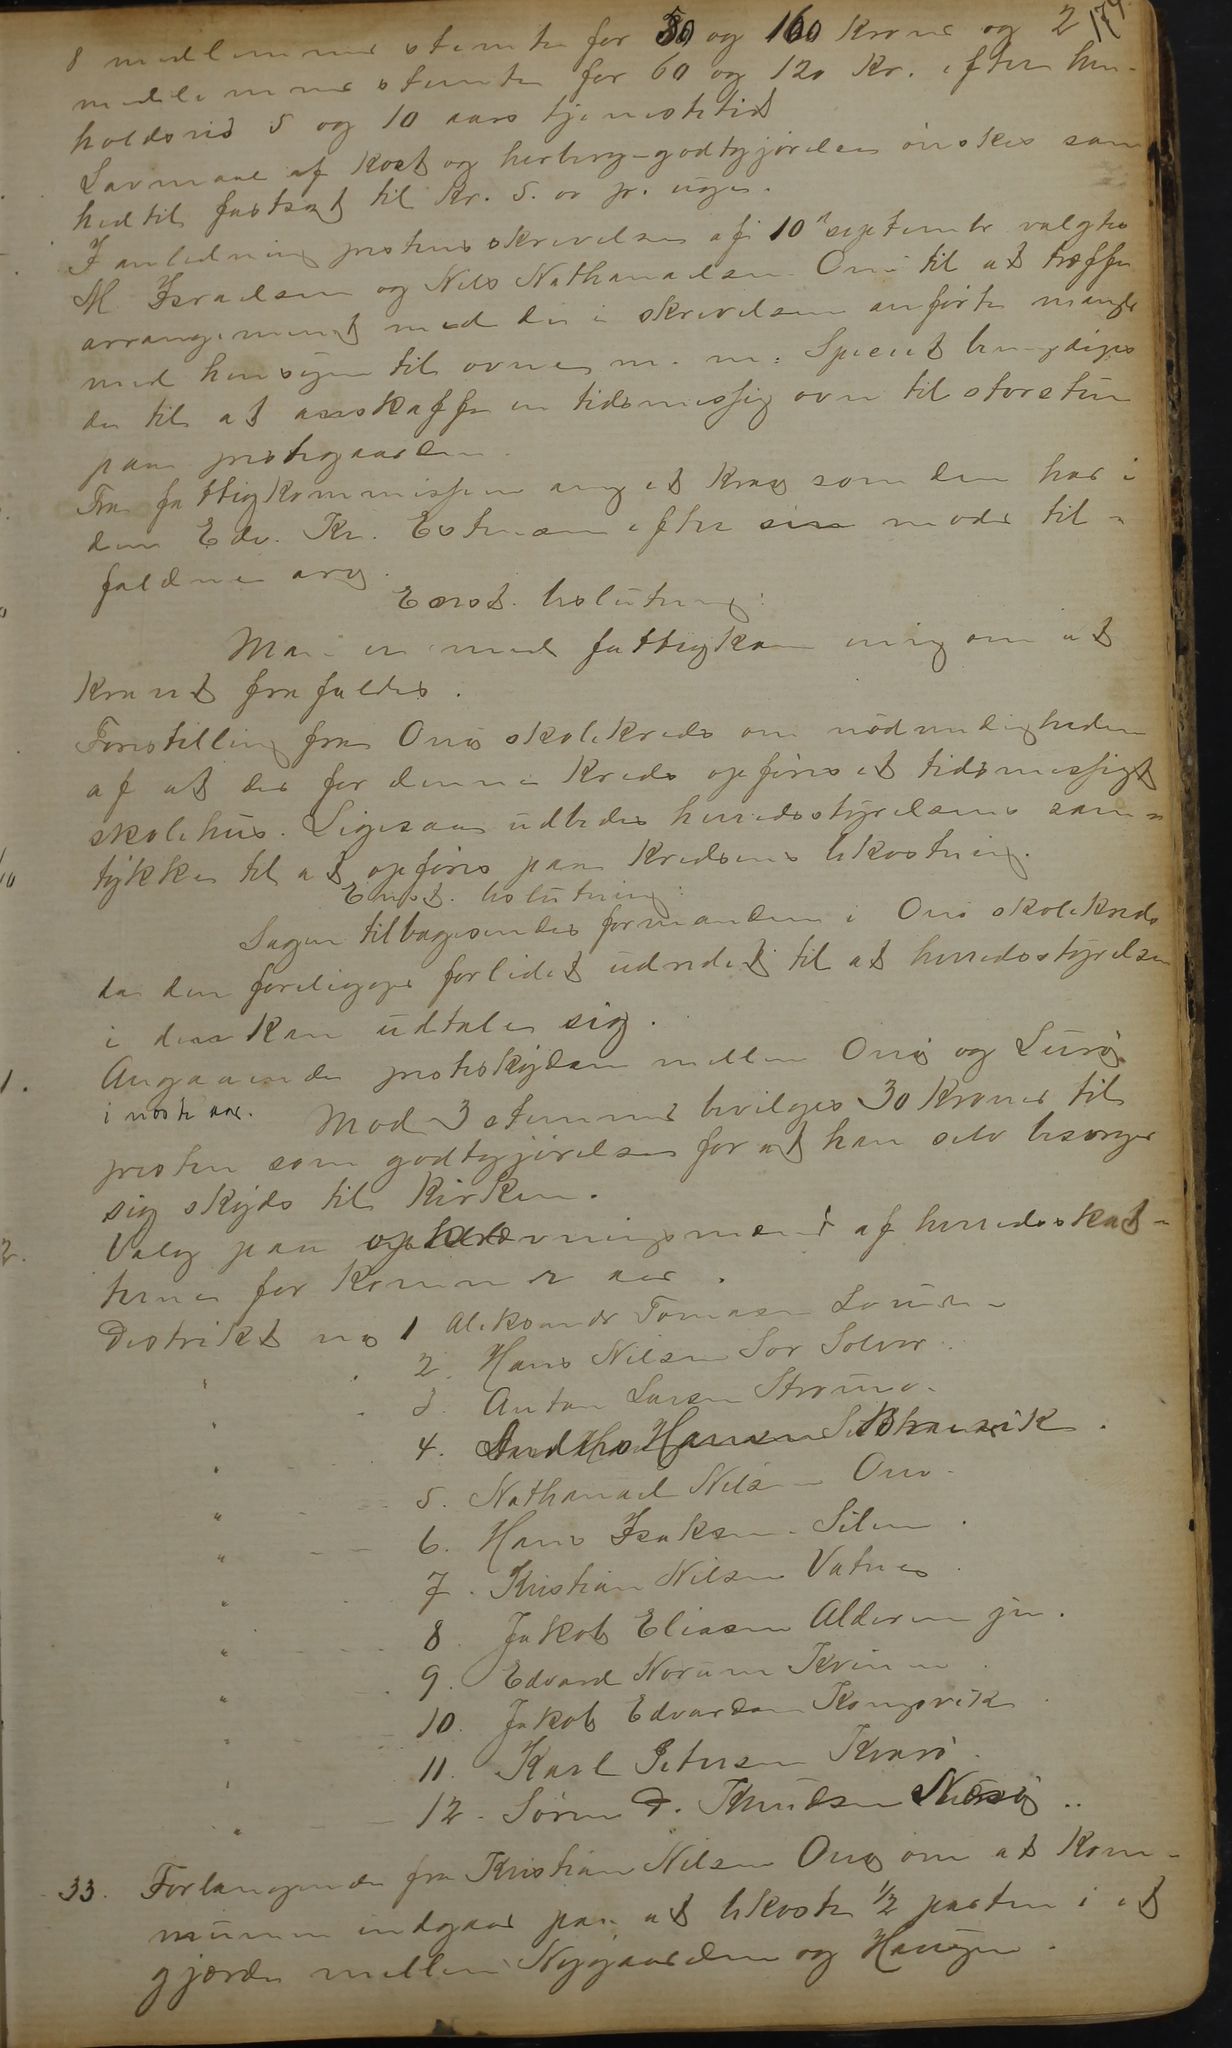 174
8 medlemmer stemte for 80 og 160 Kroner og 2
medlemmer stemte for 60 og 120 Kr. efter hen-
holdsvis 5 og 10 aars tjenestetid
Lavmaal af Kost og herberg-godtgjörelse önskes som
hidtil fastsat til Kr. 5. or pr. uge.
I anledning prestens skrivelse af 10 september valgtes
M Israelsen og Nils Nathanaelsen Onö til at træffe
arrangement med de i skrivelsen anförte mangler
med hensyn til ovner m. m. Specielt bemyndiges
de til at anskaffe en tidsmessig ovn til storstuen
paa prestegaarden.
Fra fattigkommissionen ang et Krav som den har i
den Edv. Kr. Estensen efter sin moder til-
faldene arv.
Enst. beslutning:
Man er med fattigkom enig om at
Kravet frafaldes.
Forestilling fra Onö skolekreds om nödvendigheden
af at der for denne Kreds opföres et tidsmessigt
skolehus. Ligesaa udbedes herredsstyrelsens sam-
tykke til at opföres paa Kredsens bekostning.
Enst. beslutning:
Sagen tilbagesendes formanden i Onö skolekreds
da den foreligger forlidet udredet til at herredsstyrelsen
i den kan udtale sig.
1. Angaaende presteskydsen mellem Onö og Luröy
i neste aar. Mod 3 stemmer bevilges 30 Kroner til
presten som godtgjörelse for at han selv besörger
sig skyds til Kirken.
2. Valg paa opkrævningsmænd af herredsskat-
terne for kommende aar.
Distrikt no 1 Aleksander Tomasen Lovunden
" 2. Hans Nilsen Sör Solvær.
" 3. Anton Larsen
" 4. Hansen
" 5. Nathanael Nilsen Onö.
" 6. Hans Isaksen Silen.
" 7. Kristian Nilsen Vatnes
" 8. Jakob Eliasen Alderen jun.
" 9. Edvard Norum Kvinen.
" 10. Jakob Edvardsen Kongsvik
" 11. Karl Petersen Kvarö.
" 12. Sören D. Knudsen Nesöy..
33. Forlangende fra Kristian Nilsen Onö om at Kom-
munen indgaar paa at bekoste 1/2 parten i et
gjærde mellem Nygaarden og Haugen.